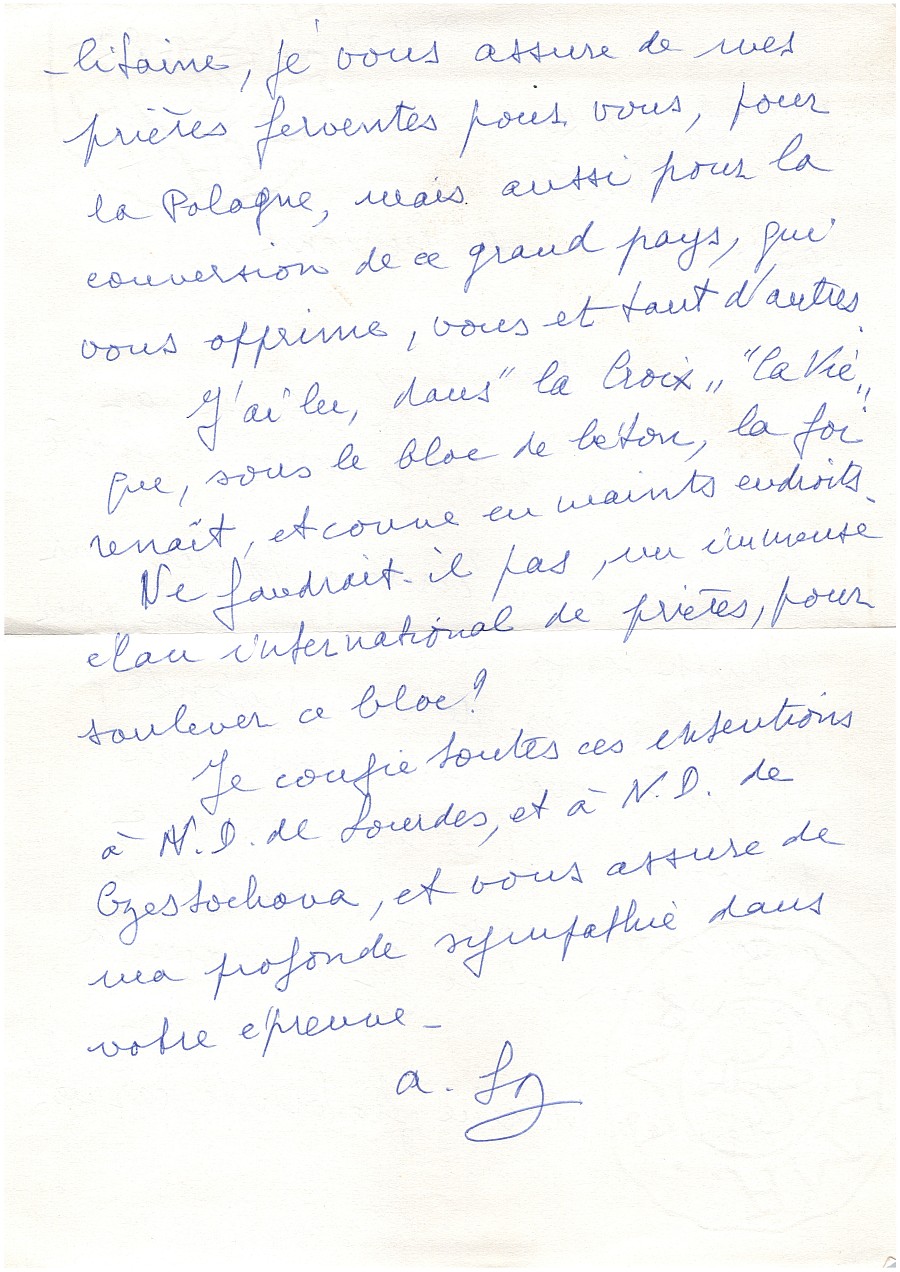 -litaine, je vous assure de mes
prières ferventes pour vous, pour
la Pologne, mais aussi pour la
conversion de ce grand pays, qui
vous opprime, vous et tant d'autres.
J'ai lu, dans "la Croix„ "la Vie„
que, sous le bloc de béton, la foi
renaît, et couve en maints endroits.
Ne faudrait-il pas, un immense
élan international de prières, pour
soulever ce bloc?
Je confie toutes ces intentions
à N.D. de Lourdes, et à N.D. de
Czestochova, et vous assure de
ma profonde sympathie dans
votre épreuve -
a.